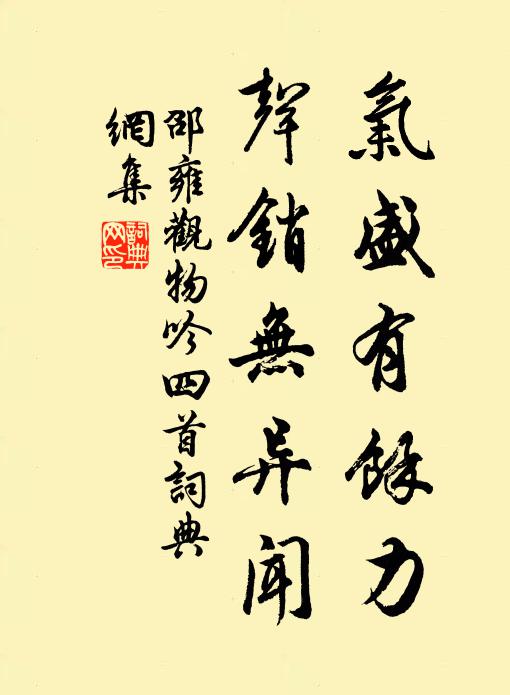 氣盛有餘力
聲銷無异闻
邵雍觀物吟四首詞典
網集
詞典网印